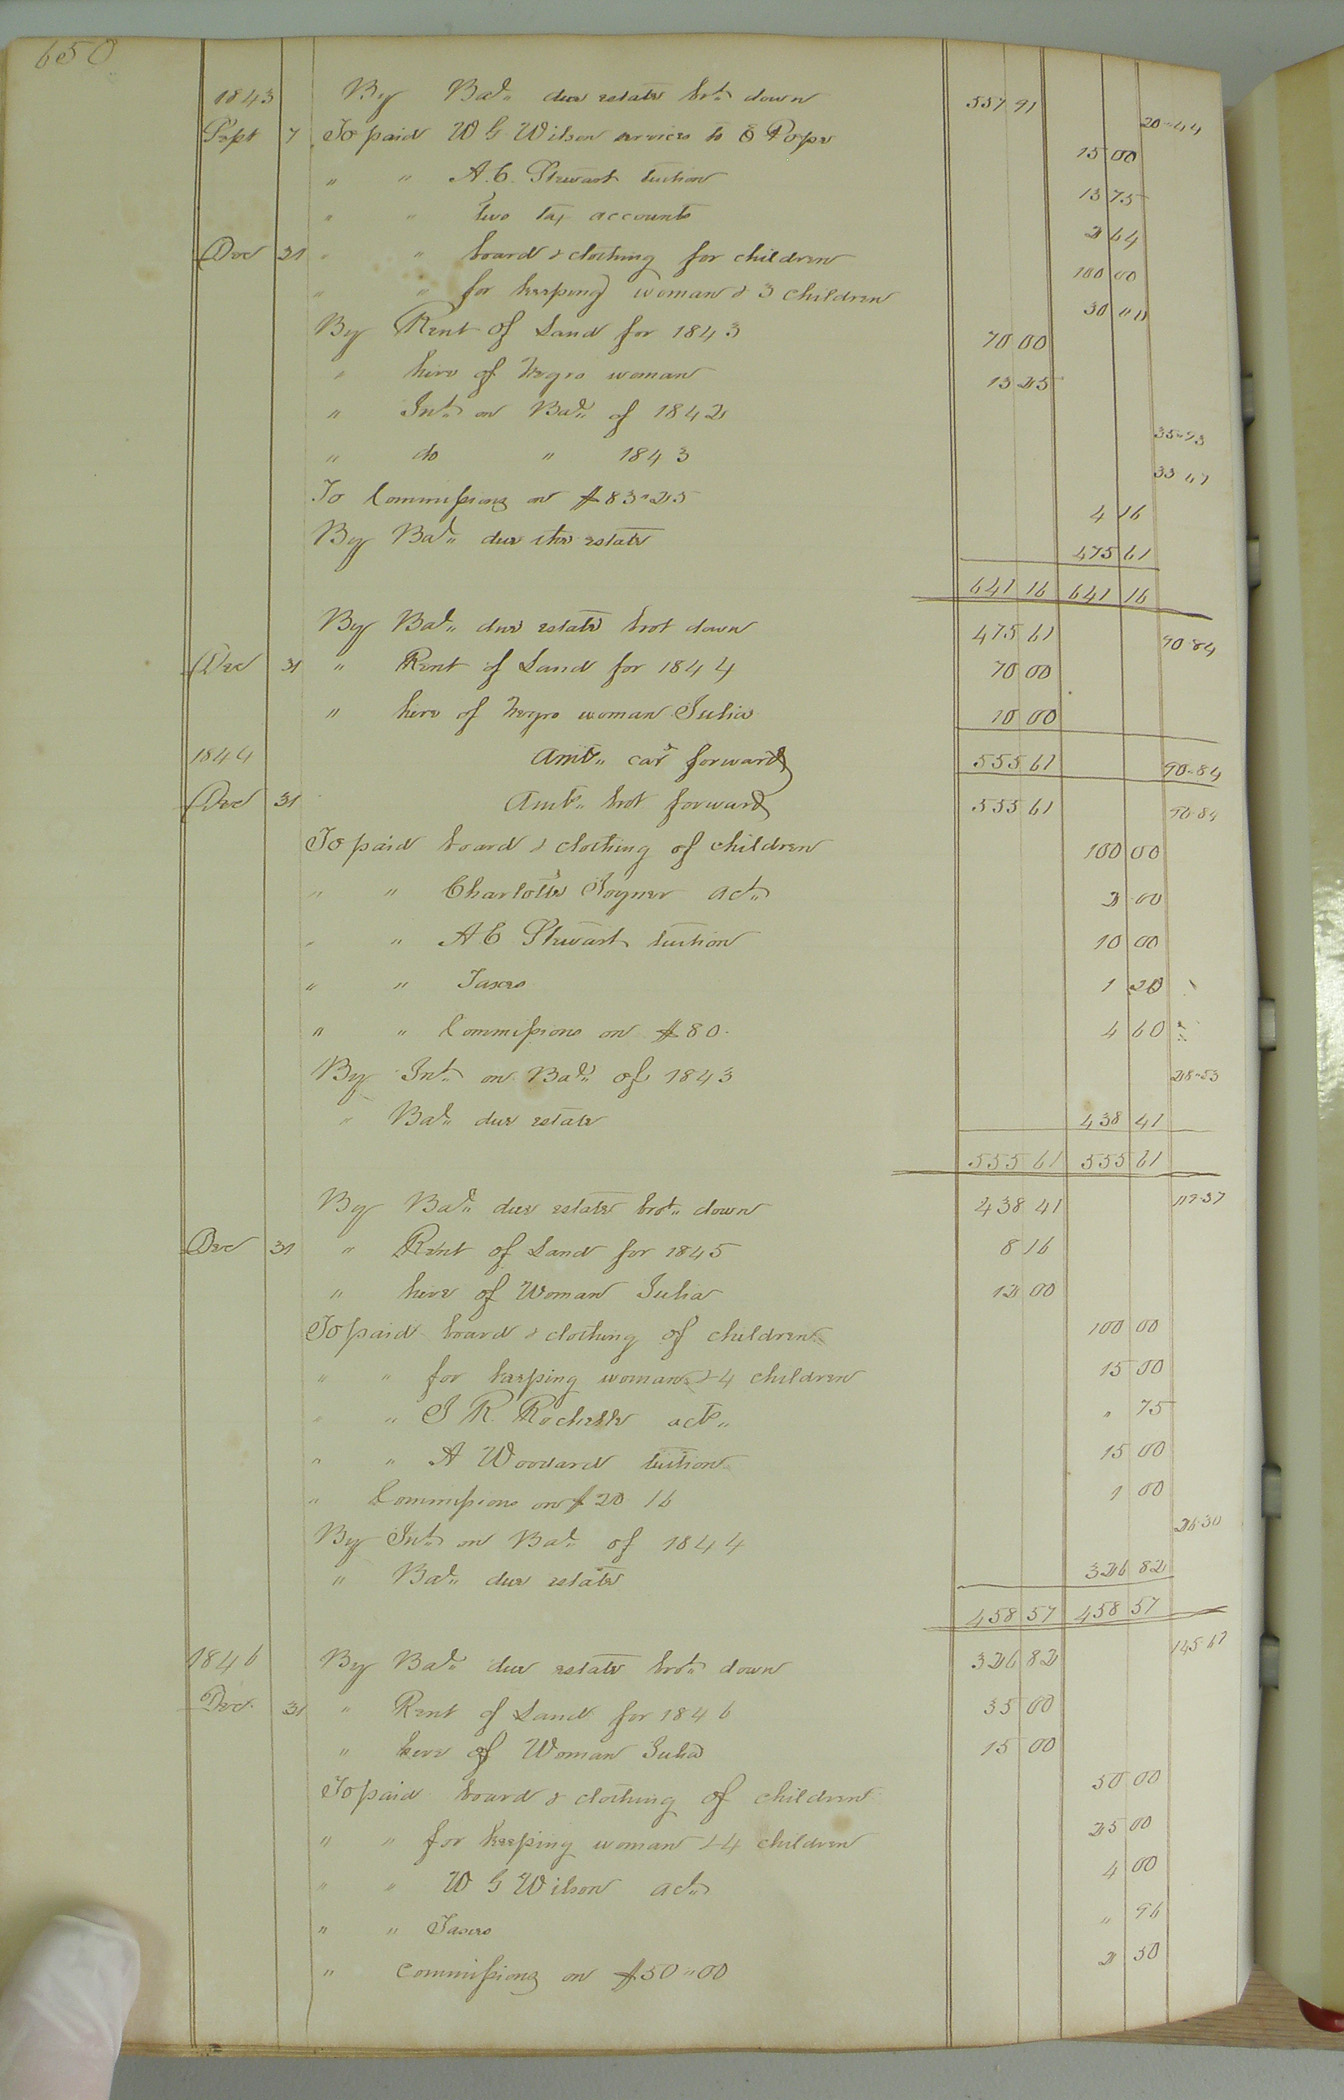 650
1843 By Bal,, due estate bro,t down 557 91 20-44
Sept 7 To paid W G Wilson services to Pope 15 00
" " A. C. Stewart tuition 13 75
" " two tax accounts 2 64
Dec 31 " " board & clothing for children 100 00
" " for keeping woman & 3 children 30 "
By Rent of Land for 1843 70 00
" hire of Negro woman 13 25
" Int on Bal,, of 1842 35-93
" do " 1843 33 47
To Commissions on $83"25 4 16
By Bal,, due the estate 475 61
641 16 641 16
By Bal,, due estate brot down 475 61 90-84
Dec 31 " Rent of Land for 1844 70 00
" hire of Negro woman Julia 10 00
1844 Amt,, car,d forward 555 61 90-84
Dec 31 Amt,, brot forward 555 61 90-84
To paid board & clothing of children 100 00
" " Charlotte Joyner act 2 00
" " A C Stewart tuition 10 00
" " Taxes 1 20
" " Commissions on $80- 4 60
By Int on Bal,, of 1843 28-53
" Bal,, due estate 438 41
555 61 555 61
By Bal,, due estate brot,, down 438 41 119-37
Dec 31 " Rent of Land for 1845 8 16
" hire of Woman Julia 12 00
To paid board & clothing of children 100 00
" " for keeping woman & 4 children 15 00
" " J R Rochelle act,, " 75
" " A Woodard tuition 15 00
" Commissions on $20 16 1 00
By Int on Bal,, of 1844 26-30
" Bal,, due estate 326 82
458 57 458 57
1846 By Bal,, due estate brot,, down 326 82 145-67
Dec. 31 " Rent of Land for 1846 35 00
" hire of Woman Julia 15 00
To paid board & clothing of children 50 00
" " for keeping woman & 4 children 25 00
" " W G Wilson act 4 00
" " Taxes " 96
" Commissions on $50"00 2 50